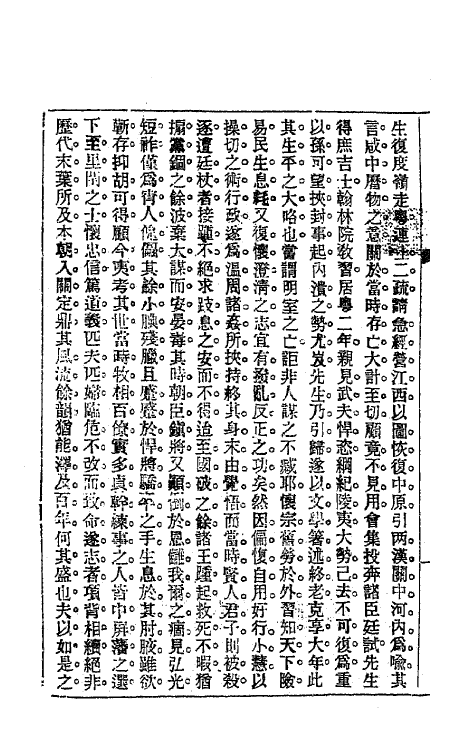 生復度嶺走粵連上二疏請急經營江西以圖恢復中原引兩漢關中河內為喩其
言咸中曆物之意關於當時存亡大計至切顧竟不見用會集投奔諸臣廷試先生
得庶吉士翰林院敎習居粵二年親見武夫悍恣綱紀陵夷大勢已去不可復為重
以孫可望挾封事起內潰之勢尤岌先生乃引歸遂以文學著述終老克享大年此
其生平之大略也嘗謂明室之亡詎非人謀之不臧耶懷宗舊勞於外習知天下險
易民生息耗又復懷澄淸之志宜有撥亂反正之功矣然因偏愎自用好行小慧以
操切之術行政遂為溫周諸姦所挾持終其身末由覺悟而當時賢人君子則被殺
逐遭廷杖者接踵不絕求跂息之安而不得迨至國破之餘諸王踵起救死不暇猶
搧黨錮之餘波棄大謀而安晏毒其時朝臣鎭將又顚倒於恩讎我爾之痼見弘光
短祚僅為宵人傀儡其餘小腆殘臘且廢廢於悍將驕卒之手生息於其肘腋雖欲
蘄存抑胡可得顧今夷考其世當時牧相百僚實多貞幹練事之人皆中屏藩之選
下至里閈之士懷忠信篤道義匹夫匹婦臨危不改而致命遂志者項背相續絕非
歷代末葉所及本朝入關定鼎其風流餘韻猶能澤及百年何其盛也夫以如是之